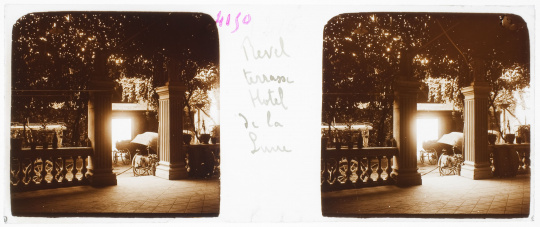 4150
Revel
terrasse
Hotel
de la
Lune